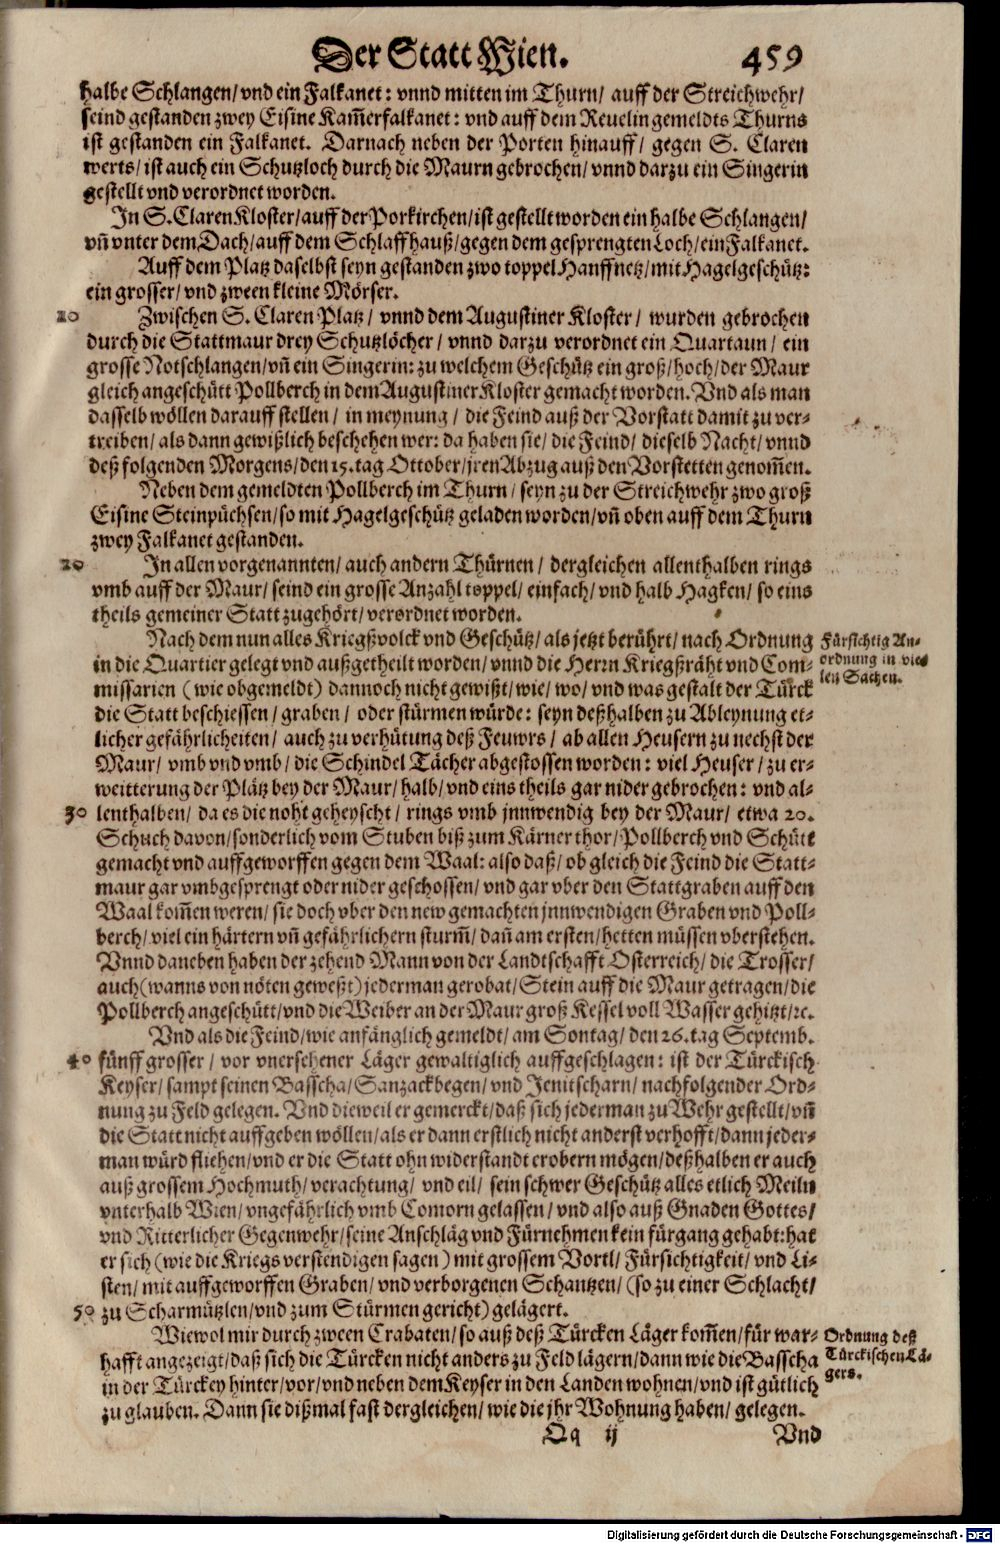 Der Statt Wien. 459
halbe Schlangen/ vnd ein Falkanet: vnnd mitten im Thurn/ auff der Streichwehr/
seind gestanden zwey Eisine Kam̃erfalkanet: vnd auff dem Reuelin gemeldts Thurns
ist gestanden ein Falkanet. Darnach neben der Porten hinauff/ gegen S. Claren
werts/ ist auch ein Schutzloch durch die Maurn gebrochen/ vnnd darzu ein Singerin
gestellt vnd verordnet worden.
In S. Claren Kloster/ auff der Porkirchen/ ist gestellt worden ein halbe Schlangen/
vñ vnter dem Dach/ auff dem Schlaffhauß/ gegen dem gesprengten Loch/ ein Falkanet.
Auff dem Platz daselbst seyn gestanden zwo toppel Hanffnetz/ mit Hagelgeschütz:
ein grosser/ vnd zween kleine Mörser.
10 Zwischen S. Claren Platz/ vnnd dem Augustiner Kloster/ wurden gebrochen
durch die Stattmaur drey Schutzlöcher/ vnnd darzu verordnet ein Quartaun/ ein
grosse Notschlangen/ vñ ein Singerin: zu welchem Geschütz ein groß/ hoch/ der Maur
gleich angeschütt Pollberch in dem Augustiner Kloster gemacht worden. Vnd als man
dasselb wöllen darauff stellen/ in meynung/ die Feind auß der Vorstatt damit zu ver-
treiben/ als dann gewißlich beschehen wer: da haben sie/ die Feind/ dieselb Nacht/ vnnd
deß folgenden Morgens/ den 15. tag Ottober/ jren Abzug auß den Vorstetten genom̃en.
Neben dem gemeldten Pollberch im Thurn/ seyn zu der Streichwehr zwo groß
Eisine Steinpüchsen/ so mit Hagelgeschütz geladen worden/ vñ oben auff dem Thurn
zwey Falkanet gestanden.
20 In allen vorgenannten/ auch andern Thürnen/ dergleichen allenthalben rings
vmb auff der Maur/ seind ein grosse Anzahl toppel/ einfach/ vnd halb Hagken/ so eins
theils gemeiner Statt zugehört/ verordnet worden.
Nach dem nun alles Kriegßvolck vnd Geschütz/ als jetzt berührt/ nach Ordnung
in die Quartier gelegt vnd außgetheilt worden/ vnnd die Herrn Kriegßräht vnd Com-
missarien (wie obgemeldt) dannoch nicht gewißt/ wie/ wo/ vnd was gestalt der Türck
die Statt beschiessen/ graben/ oder stürmen würde: seyn deßhalben zu Ableynung et-
licher gefährlicheiten/ auch zu verhütung deß Feuwrs/ ab allen Heusern zu nechst der
Maur/ vmb vnd vmb/ die Schindel Tächer abgestossen worden: viel Heuser/ zu er-
weitterung der Plätz bey der Maur/ halb/ vnd eins theils gar nider gebrochen: vnd al-
30 lenthalben/ da es die noht geheyscht/ rings vmb jnnwendig bey der Maur/ etwa 20.
Schuch davon/ sonderlich vom Stuben biß zum Kärner thor/ Pollberch vnd Schütt
gemacht vnd auffgeworffen gegen dem Waal: also daß/ ob gleich die Feind die Statt-
maur gar vmbgesprengt oder nider geschossen/ vnd gar vber den Stattgraben auff den
Waal kom̃en weren/ sie doch vber den new gemachten jnnwendigen Graben vnd Poll-
berch/ viel ein härtern vñ gefährlichern sturm̃/ dañ am ersten/ hetten müssen vberstehen.
Vnnd daneben haben der zehend Mann von der Landtschafft Osterreich/ die Trosser/
auch (wanns von nöten geweßt) jederman gerobat/ Stein auff die Maur getragen/ die
Pollberch angeschütt/ vnd die Weiber an der Maur groß Kessel voll Wasser gehitzt/ ꝛc.
Vnd als die Feind/ wie anfänglich gemeldt/ am Sontag/ den 26. tag Septemb.
40 fünff grosser/ vor vnersehener Läger gewaltiglich auffgeschlagen: ist der Türckisch
Keyser/ sampt seinen Basscha/ Sanzackbegen/ vnd Jenitscharn/ nachfolgender Ord-
nung zu Feld gelegen. Vnd dieweil er gemerckt/ daß sich jederman zu Wehr gestellt/ vñ
die Statt nicht auffgeben wöllen/ als er dann erstlich nicht anderst verhofft/ dann jeder-
man würd fliehen/ vnd er die Statt ohn widerstandt erobern mögen/ deßhalben er auch
auß grossem Hochmuth/ verachtung/ vnd eil/ sein schwer Geschütz alles etlich Meiln
vnterhalb Wien/ vngefährlich vmb Comorn gelassen/ vnd also auß Gnaden Gottes/
vnd Ritterlicher Gegenwehr/ seine Anschläg vnd Fürnehmen kein fürgang gehabt: hat
er sich (wie die Kriegs verstendigen sagen) mit grossem Vortl/ Fürsichtigkeit/ vnd Li-
sten/ mit auffgeworffen Graben/ vnd verborgenen Schantzen/ (so zu einer Schlacht/
50 zu Scharmützlen/ vnd zum Stürmen gericht) gelägert.
Wiewol mir durch zween Crabaten/ so auß deß Türcken Läger kom̃en/ für war-
hafft angezeigt/ daß sich die Türcken nicht anders zu Feld lägern/ dann wie die Basscha
in der Türckey hinter/ vor/ vnd neben dem Keyser in den Landen wohnen/ vnd ist gütlich
zu glauben. Dann sie dißmal fast dergleichen/ wie die jhr Wohnung haben/ gelegen.
Qq ij Vnd
Fürsichtig An-
ordnung in vie-
len Sachen.
Ordnung deß
Türckischen Lä-
gers.
Digitalisierung gefördert durch die Deutsche Forschungsgemeinschaft - DFG